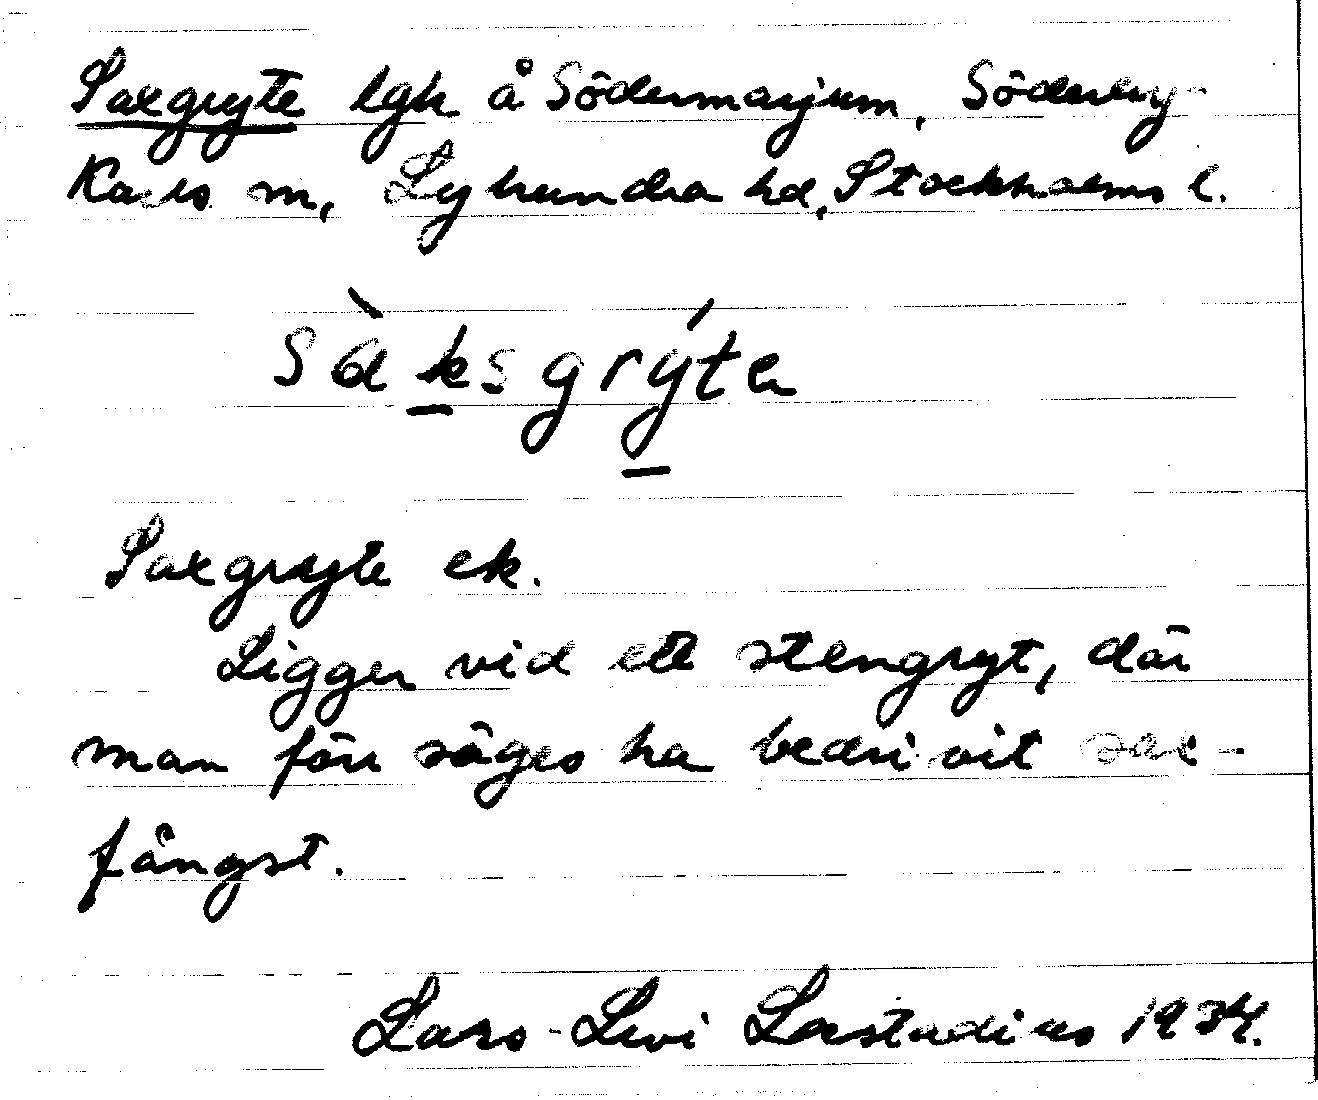 Saxgryte lgh å Södermarjum, Söderby-
Karls sn, Lyhundra hd, Stockholms l.
sàksgrýte
Saxgryte ek.
Ligger vid ett stengryt, där
man förr säges ha bedrivit sax-
fångst.
Lars-Levi Læstadius 1934.